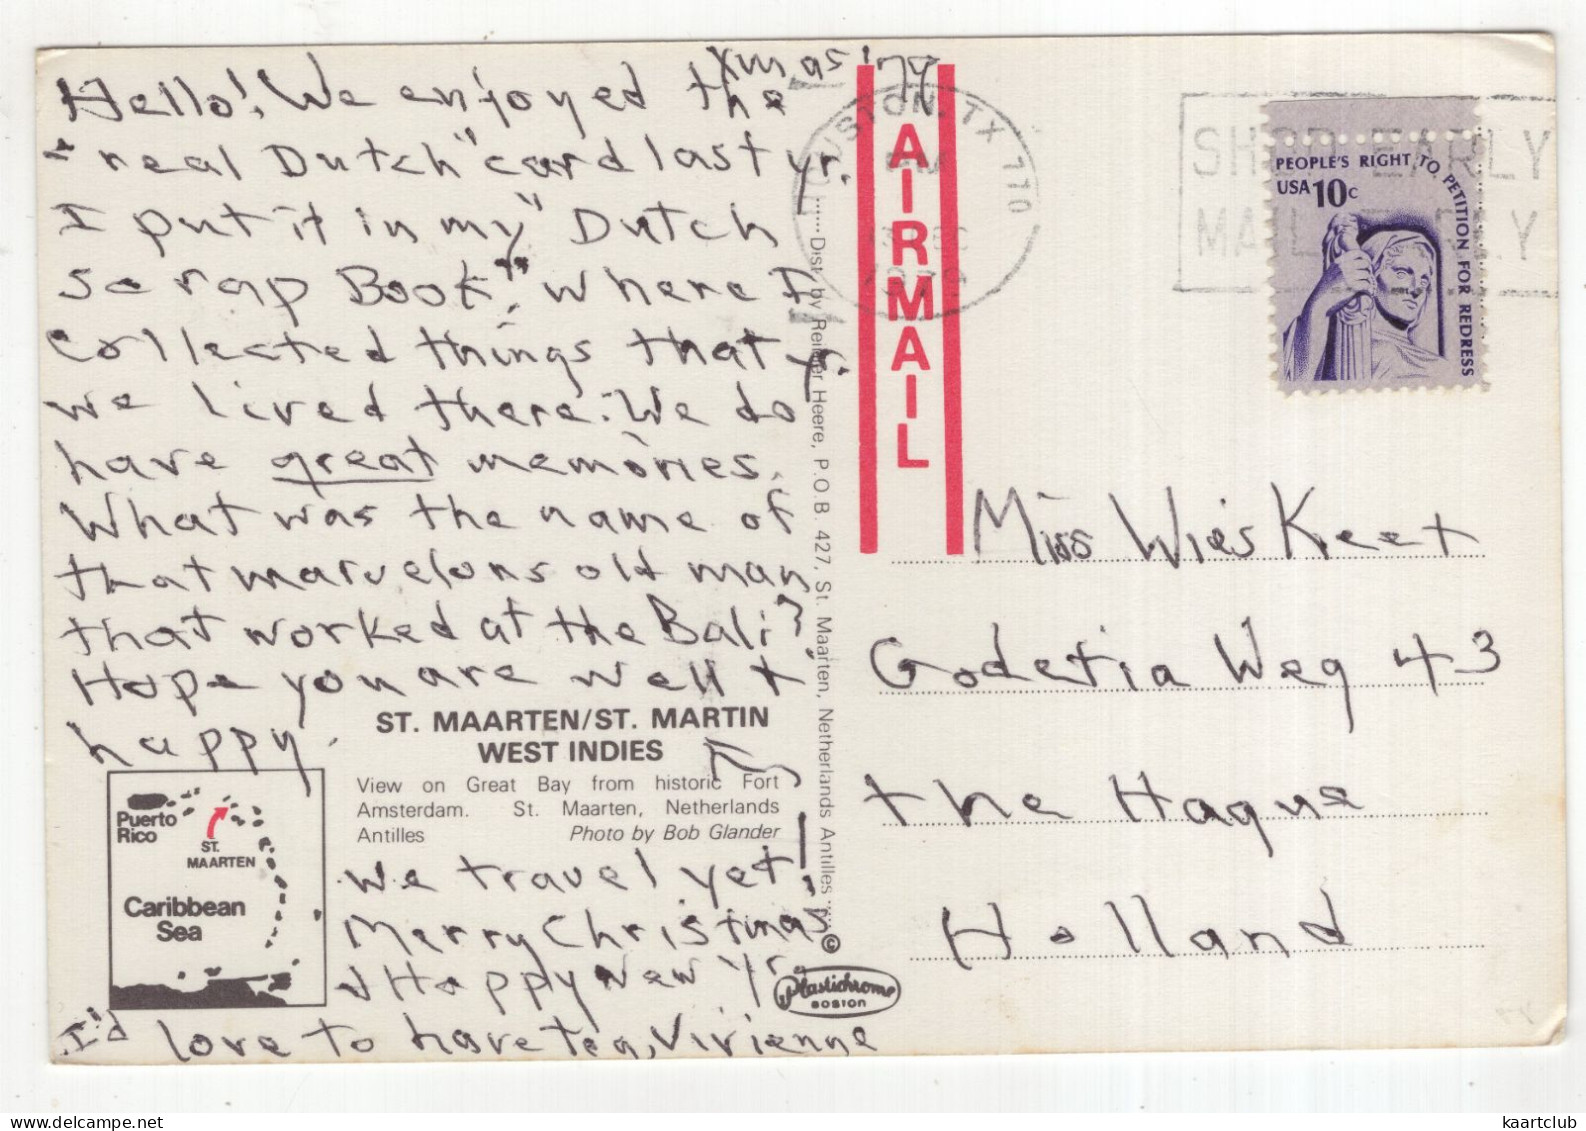 Xmas '79
Hello! We enjoyed the
"real Dutch" card last yr.
I put it in my "Dutch
Scrap Book" where I
collected things that
we lived there. We do
have great memories.
What was the name of
that marvelous old man
that worked at the Bali?
Hope you are well +
happy.
ST. MAARTEN/ST. MARTIN
WEST INDIES
View on Great Bay from historic Fort
Amsterdam. St. Maarten, Netherlands
Antilles Photo by Bob Glander
Puerto
Rico
ST.
MAARTEN
Caribbean
Sea
We travel yet!
Merry Christmas
+ Happy New Yr
I'd love to have tea, Vivienne
Dist. by Reinier Heere, P.O.B. 427, St. Maarten, Netherlands Antilles ©
Plastichrome
BOSTON
AIRMAIL
HOUSTON, TX 770
PM
13 DEC
1979
SHOP EARLY
MAIL EARLY
PEOPLE'S RIGHT TO PETITION FOR REDRESS
USA 10c
Miss Wies Keet
Godetia Weg 43
the Hague
Holland
kaartclub